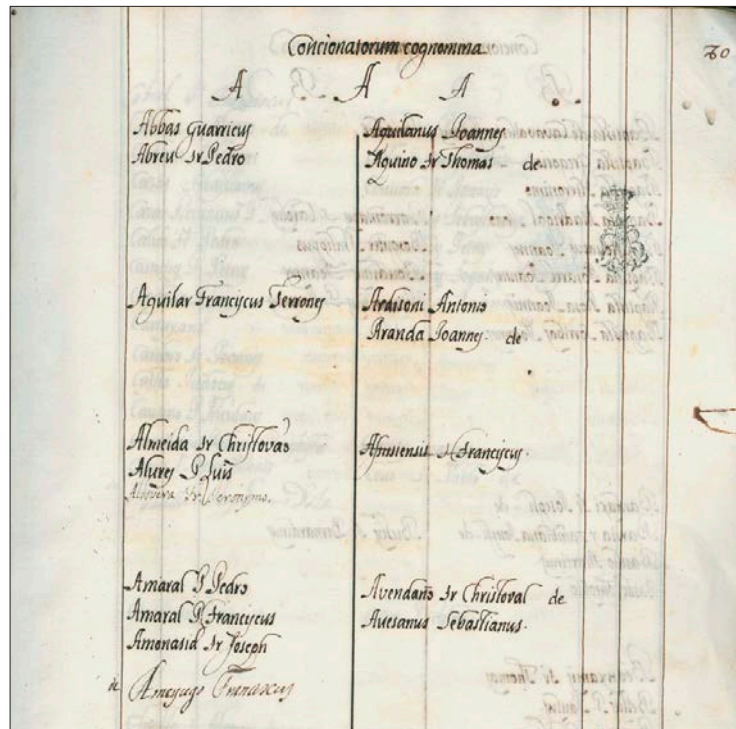 Concionatorum cognomina
80
A A A
Abbas Guarricus
Abreu Fr Pedro
Aguilar Franciscus Terrones
Almeida Fr Christovao
Alvres P. Luis
Fr Jeronymo.
Amaral P. Pedro
Amaral P. Franciscus
Amonasid Fr Joseph
de Ameyugo Franciscus
Aquilanus Joannes
Aquino Fr Thomas de
Ardisoni Antonio
Aranda Joannes. de
Franciscus.
Avendaño Fr Christoval de
Avesanus Sebastianus.